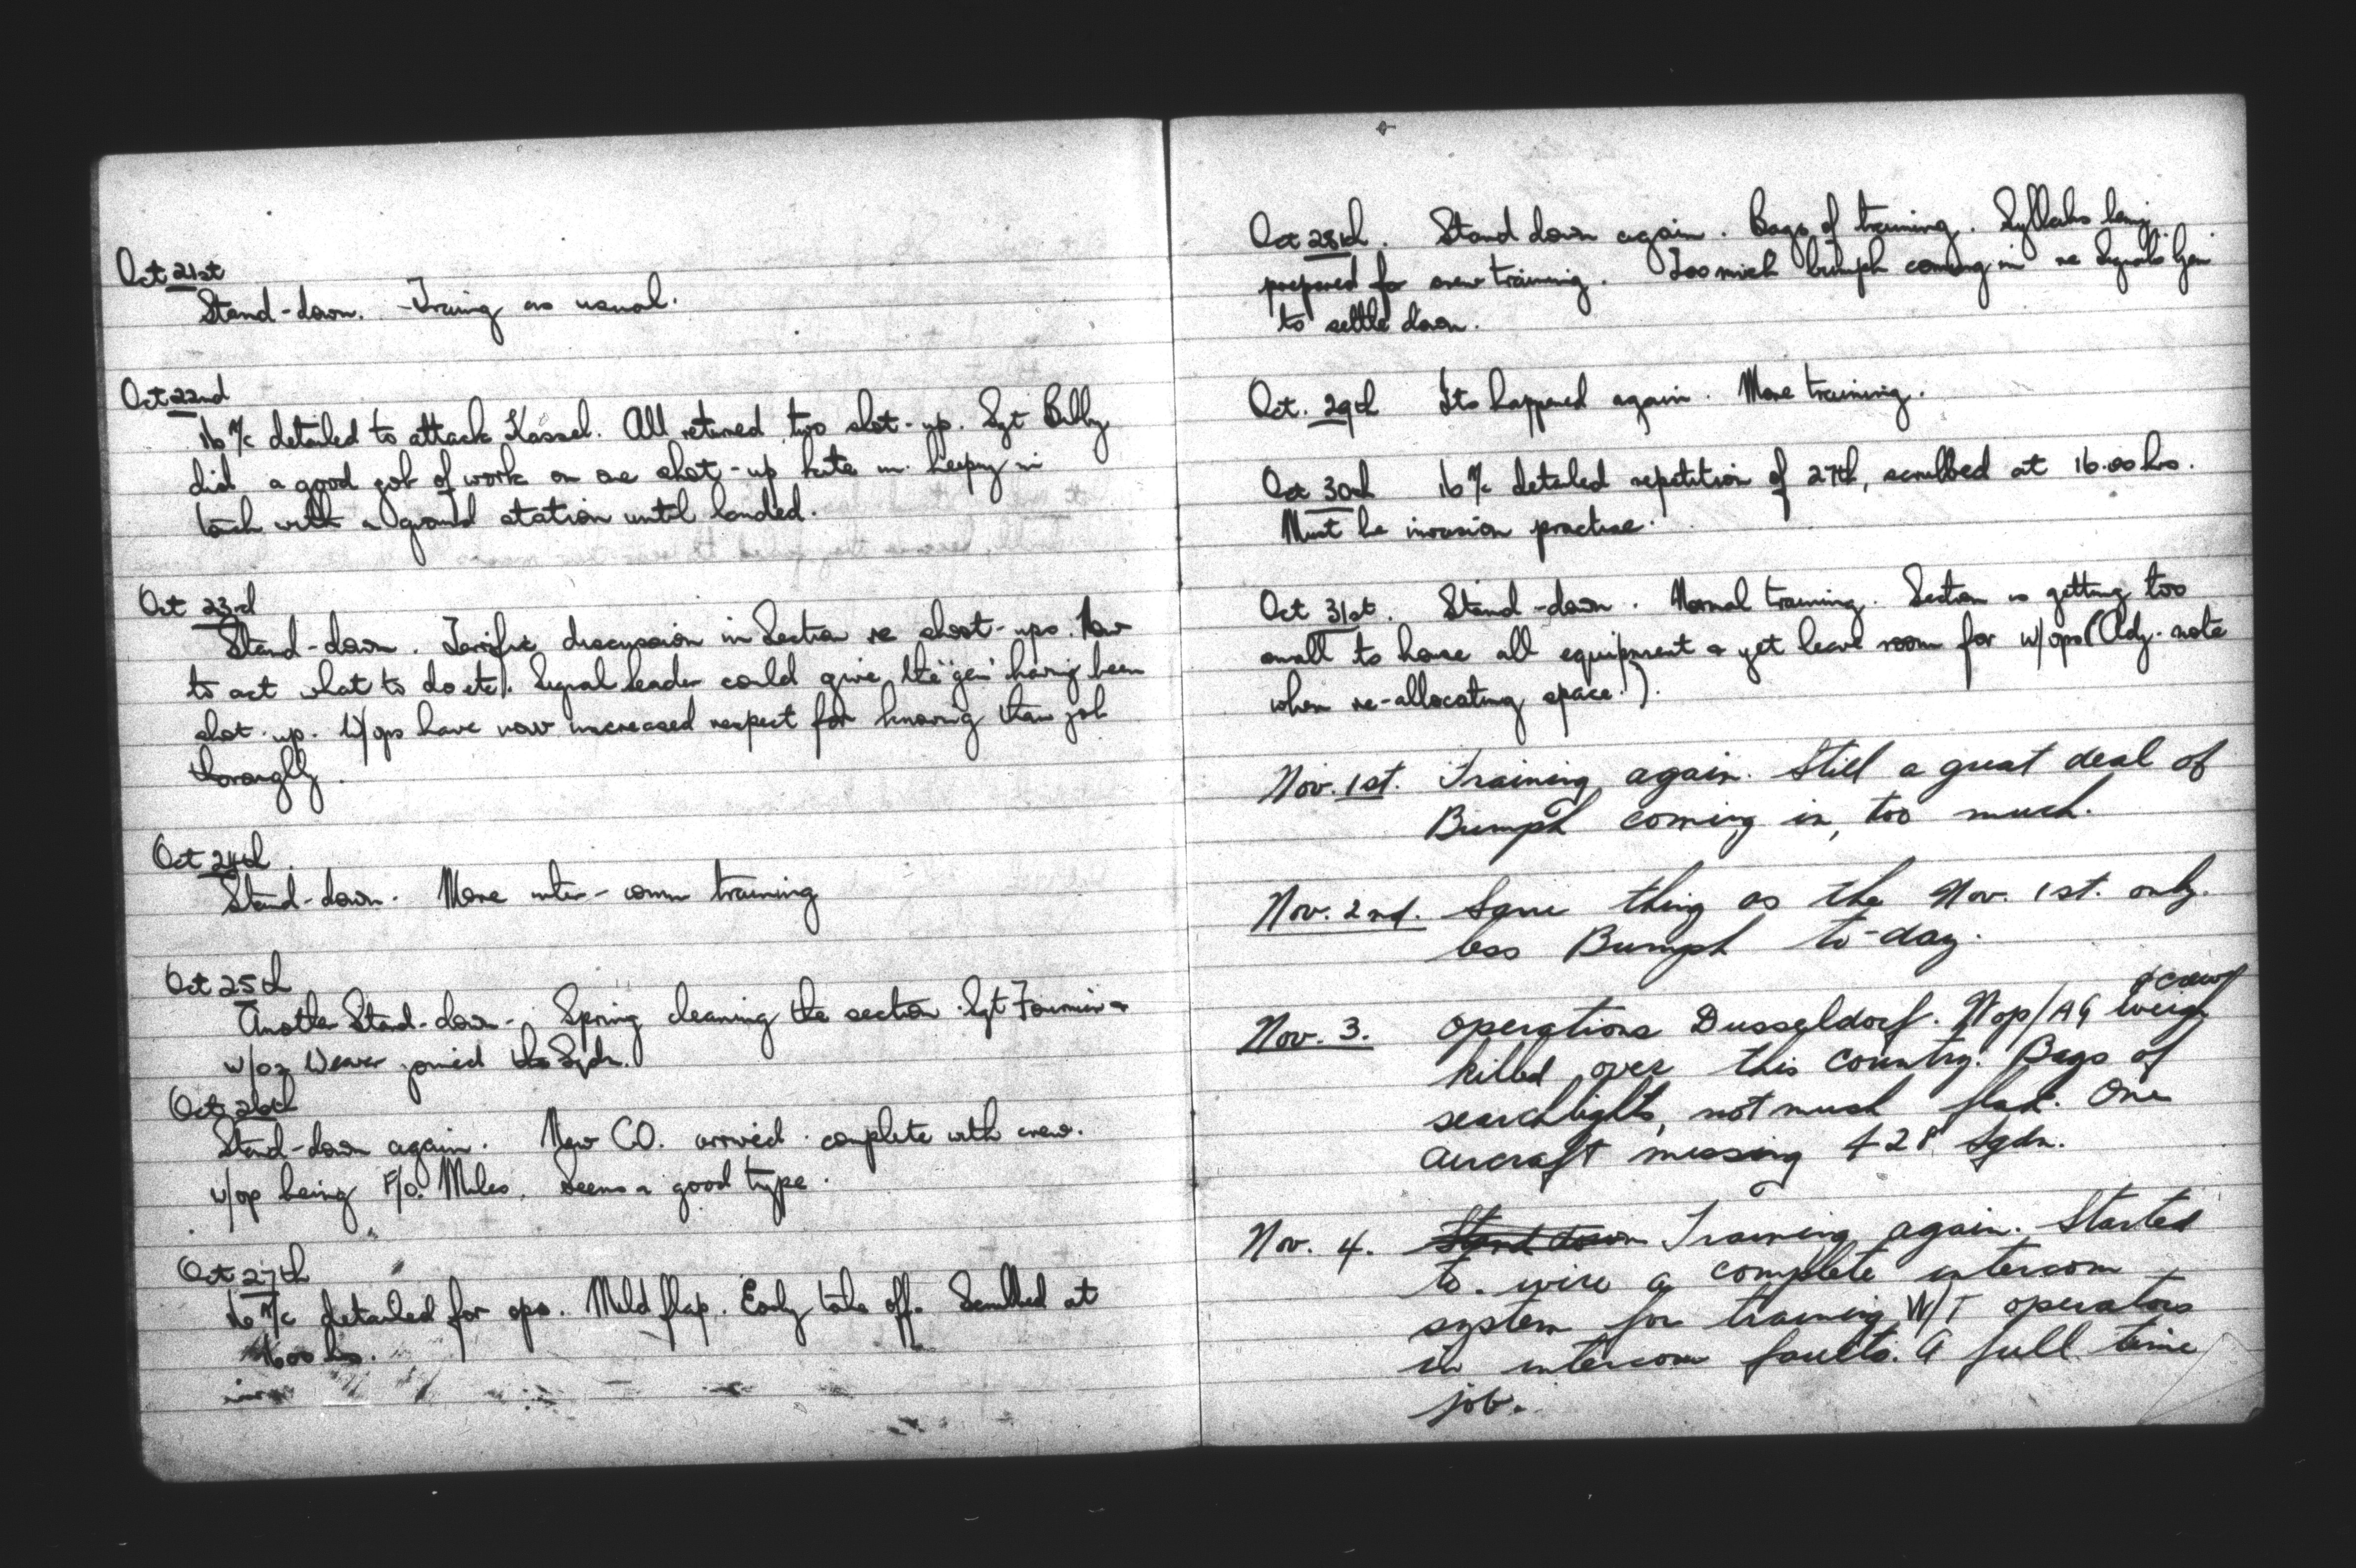 Oct 21st
Stand-down. Traing as usual.
Oct 22nd
16 A/c detailed to attack Kassel. All returned, two shot-up. Sgt
did a good job of work on one shot-up kite in keeping in
touch with a ground station until landed.
Oct 23rd
Stand-down. Terrific discussion in Section re shoot-ups. How
to act what to do etc. Signal leader could give the "gen" having been
shot up. W/ops have now increased respect for knowing their job
thoroughly.
Oct 24th
Stand-down. More inter-comm training
Oct 25th
Another Stand-down. Spring cleaning the section. Sgt Fournier &
Weaver joined the Sqdn.
Oct 26th
Stand-down again. New CO. arrived complete with crew.
W/op being F/O. Miles. Seems a good type.
Oct 27th
16 A/c detailed for ops. Mild flap. Early take off. Scrubbed at
1600 hrs.
Oct 28th. Stand down again. Bags of training. Syllabus being
prepared for crew training. Too much bumph coming in re Signals Gen
to settle down.
Oct. 29th Its happened again. More training.
Oct 30th 16 A/c detailed repetition of 27th, scrubbed at 16.00 hrs.
Must be invasion practise.
Oct 31st. Stand-down. Normal training. Section is getting too
small to house all equipment & yet leave room for w/ops (Adj. note
when re-allocating space.).
Nov. 1st. Training again. Still a great deal of
Bumph coming in, too much.
Nov. 2nd. Same thing as the Nov. 1st. only.
less Bumph to-day.
& crew
Nov. 3. Operations Dusseldorf. Wop/AG
killed over this country. Bags of
searchlights, not much flak. One
aircraft missing 428 Sqdn.
Nov. 4. Stand down Training again. Started
to wire a complete intercom
system for training W/T operators
in intercom faults. A full time
job.